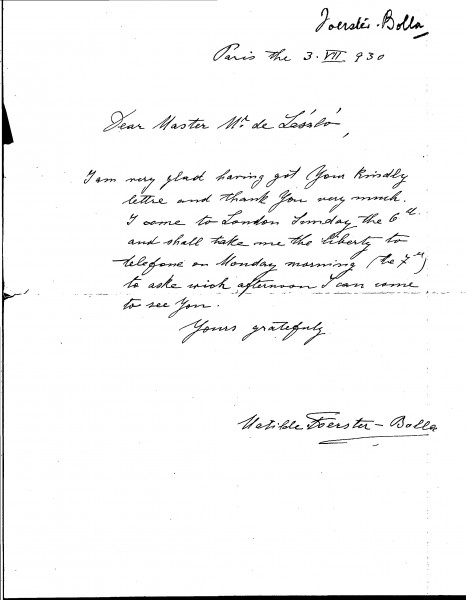 Foerster-Bolla
Paris the 3. VII. 930
Dear Master Mr. de László,
I am very glad having got Your Kindly
lettre and thank You very much.
I come to London Sunday the 6th
and shall take me the liberty to
telefone on Monday morning (the 7th)
to aske wich afternoon I can come
to see You.
Yours gratefuly
Matilde Foerster-Bolla